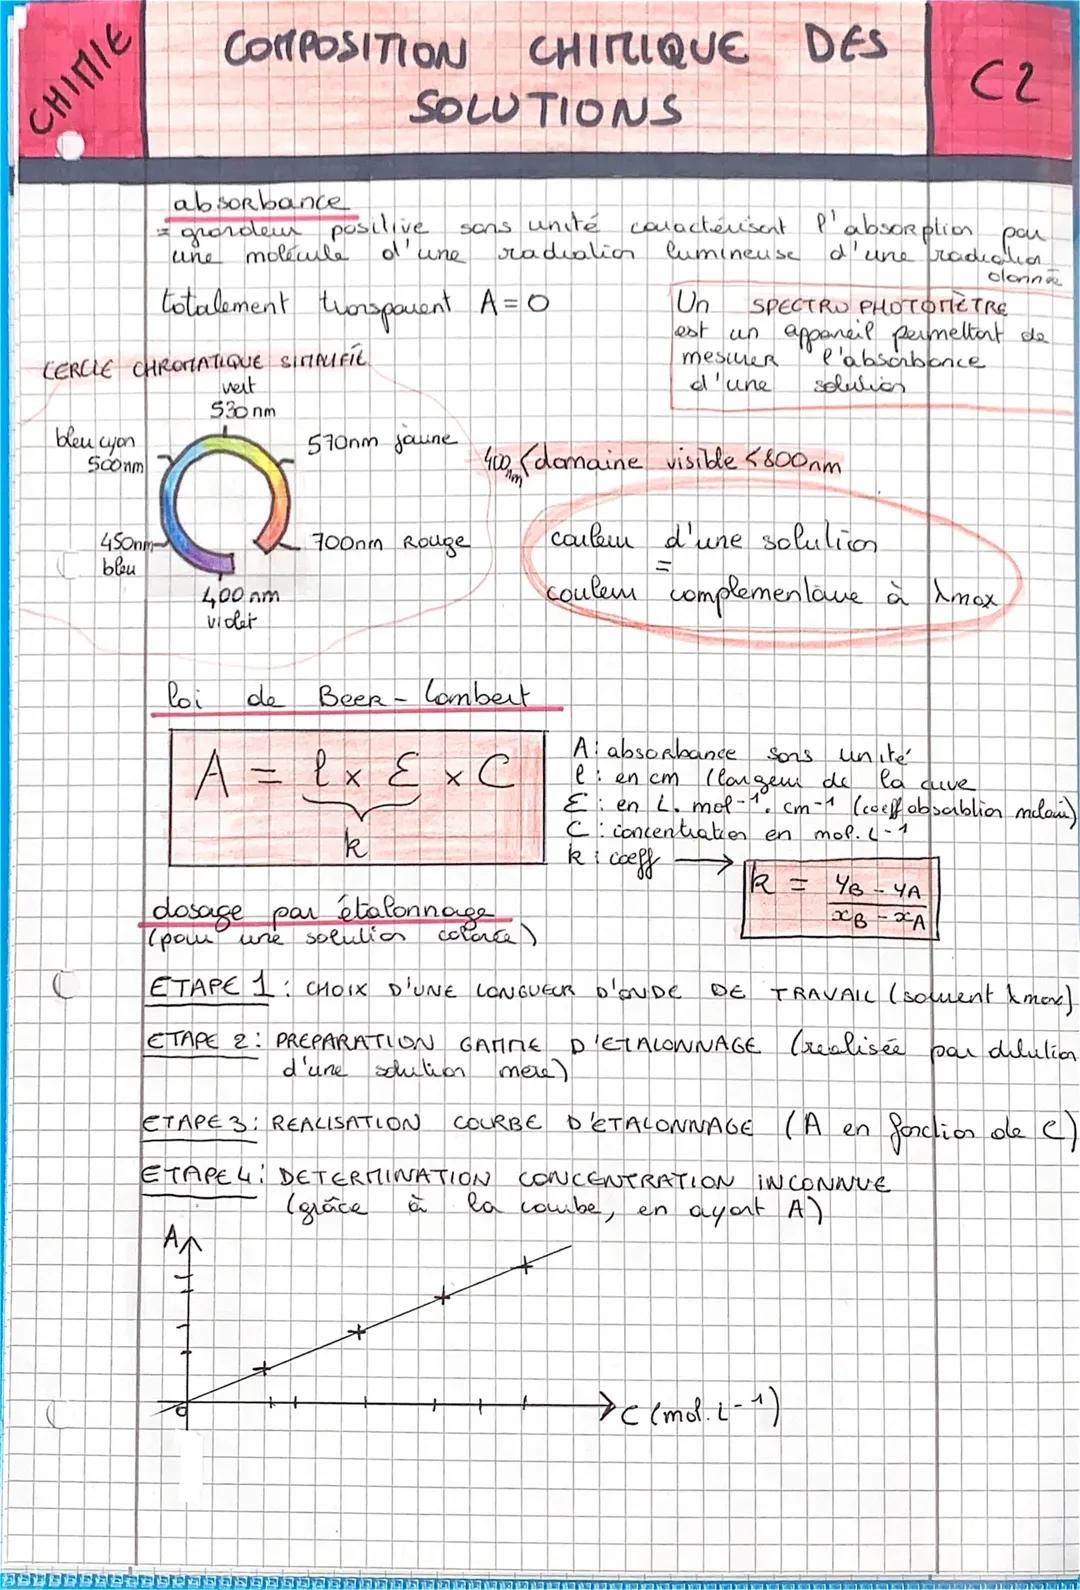 CHIMIE
COMPOSITION CHIMIQUE DES
SOLUTIONS
C2
absorbance
= grandeur positive sans unité caractérisant l'absorption par
une molécule d'une radiation lumineuse d'une radiation
donnée
totalement transparent A = 0
Un SPECTROPHOTOMÈTRE
est un appareil permettant de
mesurer l'absorbance
d'une solution
CERCLE CHROMATIQUE SIMPLIFIÉ
vert
530 nm
bleu cyan
500nm
570nm jaune
450nm
bleu
700nm Rouge
400 nm
violet
400 nm < domaine visible < 800nm
couleur d'une solution
=
couleur complémentaire à λmax
loi de Beer - Lambert
A = l x Ɛ x C
k
A : absorbance sans unité
l : en cm (largeur de la cuve
Ɛ : en L. mol-1. cm-1 (coeff absorbtion molaire)
C : concentration en mol. L-1
k : coeff →
k = yB - yA
xB - xA
dosage par étalonnage
(pour une solution colorée)
ETAPE 1 : CHOIX D'UNE LONGUEUR D'ONDE DE TRAVAIL (souvent λmax)
ETAPE 2 : PREPARATION GAMME D'ETALONNAGE (realisée par dilution
d'une solution mere)
ETAPE 3 : REALISATION COURBE D'ETALONNAGE (A en fonction de C)
ETAPE 4 : DETERMINATION CONCENTRATION INCONNUE
(grâce à la courbe, en ayant A)
A
0
C (mol. L-1)